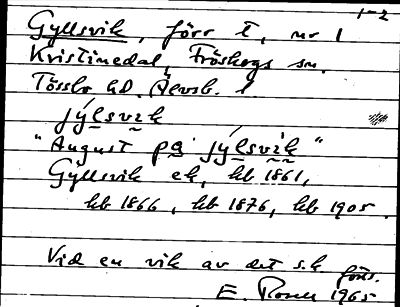 1-2
Gyllsvik, förr t, nr 1
Kristinedal, Fröskogs sn.
Tössbo hd. Älvsb. l
jýlsvik
"August på jýlsvik"
Gyllsvik ek, hb 1861,
hb 1866, hb 1876, hb 1905.
Vid en vik av det s.k. föns.
E. Rosen 1965